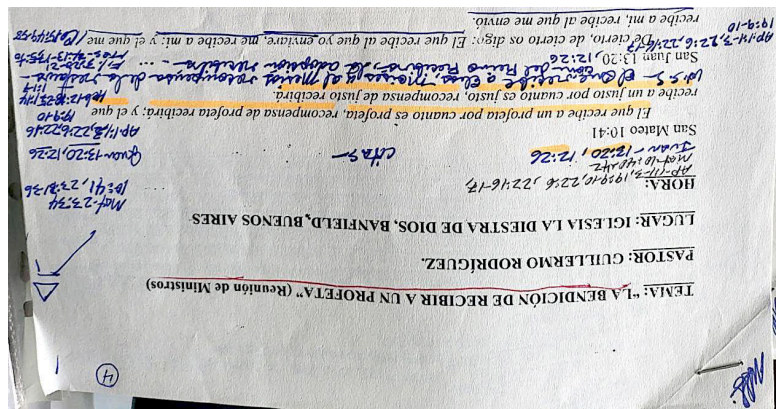 4
TEMA: "LA BENDICIÓN DE RECIBIR A UN PROFETA" (Reunión de Ministros)
PASTOR: GUILLERMO RODRÍGUEZ.
LUGAR: IGLESIA LA DIESTRA DE DIOS, BANFIELD, BUENOS AIRES
HORA:
AP-1:1-3, 19:9-10, 22:6, 22:16-17,
Mat-10:40-42
Juan-13:20, 12:26
citas-
Mat-23:34
10:41, 23:31-36
Juan-13:20, 12:26
San Mateo 10:41
El que recibe a un profeta por cuanto es profeta, recompensa de profeta recibirá; y el que
19:9-10
recibe a un justo por cuanto es justo, recompensa de justo recibirá.
W.S.S- El que recibe a Elías, Moisés y al Mesías
San Juan 13:20, 12:26
De cierto, de cierto os digo: El que recibe al que yo enviare, me recibe a mí; y el que me
recibe a mí, recibe al que me envió.
AP-1:1-3, 22:6, 22:16-17
19:9-10